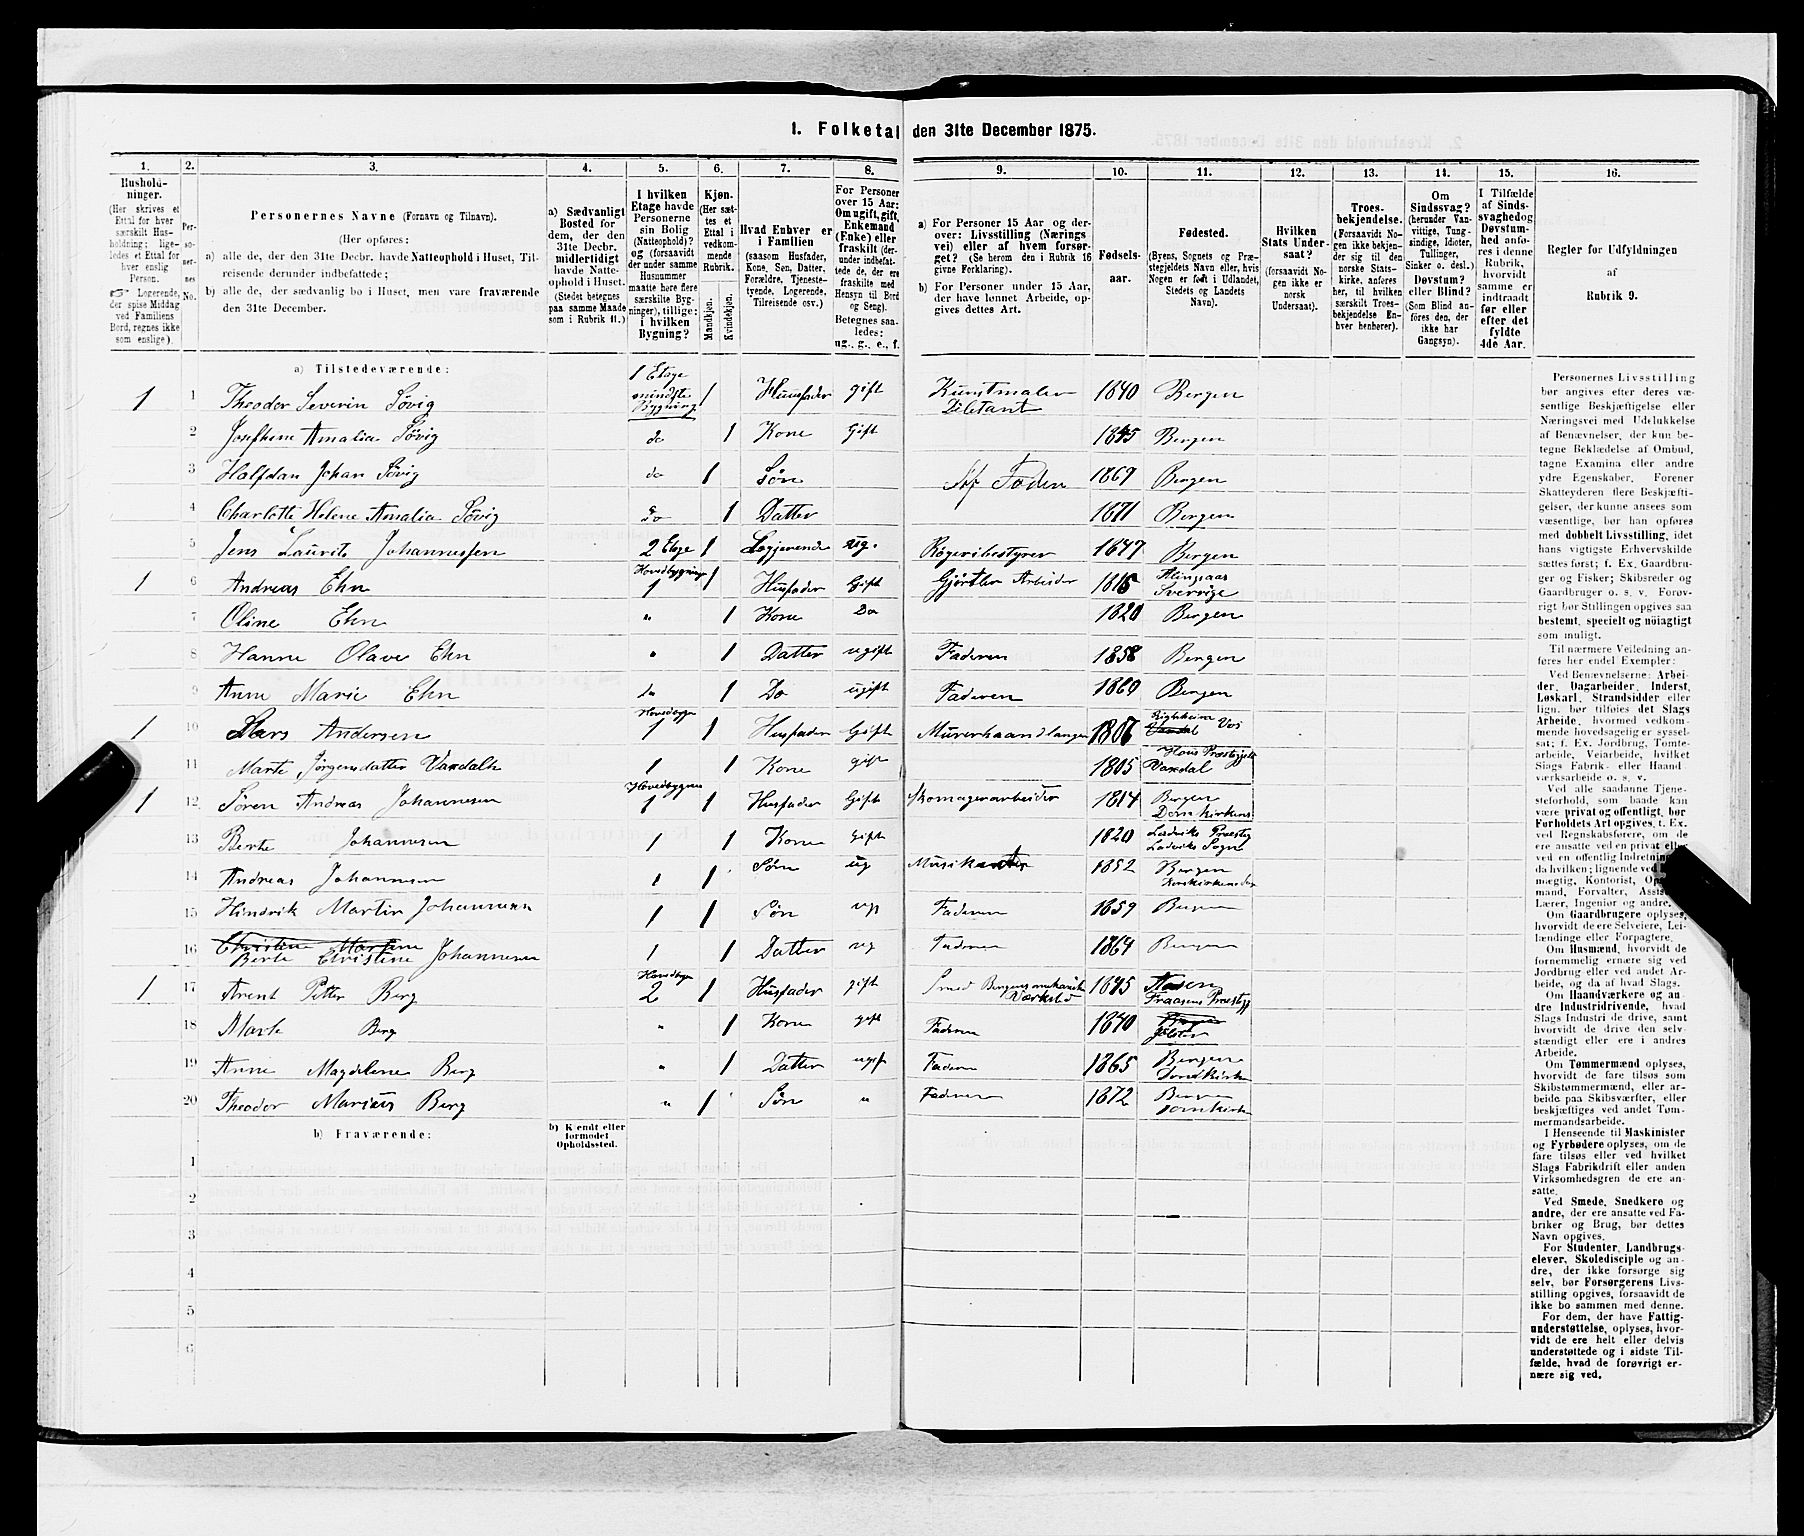 1. Folketal den 31te December 1875.
1.
2.
3.
4.
5.
6.
7.
8.
9.
10.
11.
12.
13.
14.
15.
16.
Husholdninger.
(Her skrives et
Ettal for hver
særskilt Husholdning; ligeledes et Ettal for
hver enslig
Person.
☞ Logerende,
der spise Middag
ved Familiens
Bord, regnes ikke
som enslige).
Personernes No.
Personernes Navne (Fornavn og Tilnavn).
(Her opføres:
a) alle de, der den 31te Decbr. havde Natteophold i Huset, Tilreisende derunder indbefattede;
b) alle de, der sædvanlig bo i Huset, men vare fraværende
den 31te December.
a) Sædvanligt
Bosted for
dem, der den
31te Decbr.
midlertidigt
havde Natteophold i Huset.
(Stedet betegnes
paa samme Maade
som i Rubrik 11.)
I hvilken
Etage havde
Personerne
sin Bolig
(Natteophold)?
og (forsaavidt
der under samme
Husnummer
maatte høre flere
særskilte Bygninger), tillige:
i hvilken
Bygning?
Kjøn.
(Her sættes et
Ettal i
vedkommende
Rubrik.
Mandkjøn.
Kvindekjøn.
Hvad Enhver er
i Familien
(saasom Husfader,
Kone, Søn, Datter,
Forældre, Tjenestetyende, Logerende,
Tilreisende osv.)
For Personer
over 15 Aar:
Om ugift, gift,
Enkemand
(Enke) eller
fraskilt (derunder indbefattede de, der ere
fraskilte med
Hensyn til Bord
og Seng).
Betegnes saaledes:
ug., g., e., f.
a) For Personer 15 Aar og derover: Livsstilling (Næringsvei) eller af hvem forsørget? (Se herom den i Rubrik 16
givne Forklaring).
b) For Personer under 15 Aar,
der have lønnet Arbeide, opgives dettes Art.
Fødselsaar.
Fødested.
(Byens, Sognets og Præstegjeldets Navn eller, hvis
Nogen er født i Udlandet,
Stedets og Landets
Navn).
Hvilken
Stats Undersaat?
(forsaavidt Nogen ikke er
norsk
Undersaat).
Troesbekjendelse.
(Forsaavidt Nogen ikke bekjender sig til den
norske Statskirke, anføres
her, til hvilken
særskilt Troesbekjendelse Enhver henhører).
Om
Sindssvag?
(herunder Vanvittige, Tungsindige, Idioter,
Tullinger,
Sinker o. desl.)
Døvstum?
eller Blind?
(Som Blind anføres den, der
ikke har
Gangsyn).
I Tilfælde
af Sindssvaghed og
Døvstumhed anføres i denne
Rubrik,
hvorvidt
samme er
indtraadt
før eller
efter det
fyldte
4de Aar.
Regler for Udfyldningen
af
Rubrik 9.
a) Tilstedeværende:
1 1 Theodor Severin Søvig 1 Etage mindste Bygning 1 Husfader gift Kunstmaler Diletant 1840 Bergen
2 Josefhine Amalia Søvig do 1 Kone Gift 1845 Bergen
3 Halfdan Johan Søvig do 1 Søn Af Faden 1869 Bergen
4 Charlotte Helene Amalia Søvig do 1 Datter 1871 Bergen
5 Jens Laurits Johannessen 2 Etage 1 Logjerende ug. Røgeribestyrer 1847 Bergen
1 6 Andreas Ehn Hovedbygning 1 1 Husfader Gift Gjørtler Arbeider 1816 Alingsaas Sverrige
7 Oline Ehn " 1 Kone Do 1820 Bergen
8 Hanne Olave Ehn " 1 Datter ugift Faderen 1858 Bergen
9 Anne Marie Ehn do 1 Do ugift Faderen 1860 Bergen
1 10 Lars Andersen Hovedbygn 1 1 Husfader Gift Murerhaandlanger 1806 Vos
11 Marte Jørgensdatter Vaxdalh 1 1 Kone gift 1805 Hous Præstegjeld Vaxdal
1 12 Søren Andreas Johannesen Hovedbygnin 1 1 Husfader Gift Skomagerarbeider 1814 Bergen Domkirkens
13 Berte Johannesen 1 1 Kone Gift 1820 Ladviks Præsteg Ladviks Sogn
14 Andreas Johannesen 1 1 Søn ug Musikanter 1852 Bergen
15 Hindrik Martin Johannesen 1 1 Søn ug Faderen 1859 Bergen
16 Christine Martine Berte Christine Johannesen 1 1 Datter ug Faderen 1864 Bergen
1 17 Arent Petter Berg Hovedbygn 2 1 Husfader gift Smed Bergens mekaniske Værksted 1845 Aasen Fraasens Præstegj
18 Marte Berg " 1 Kone gift Faderen 1840 Bergen Jølster
19 Anne Magdelene Berg " 1 Datter ugift Faderen 1865 Bergen Domkirke
20 Theodor Marius Berg " 1 Søn " Faderen 1872 Bergen Domkirke
b) Fraværende:
b) Kjendt eller
formodet
Opholdssted.
1
2
3
4
5
6
Personernes Livsstilling
bør angives efter deres væsentlige Beskjæftigelse eller
Næringsvei med Udelukkelse
af Benævnelser, der kun betegne Beklædelse af Ombud,
tagne Examina eller andre
ydre Egenskaber. Forener
Skatteyderen flere Beskjæftigelser, der kunne ansees som
væsentlige, bør han opføres
med dobbelt Livsstilling, idet
hans vigtigste Erhvervskilde
sættes først; f. Ex. Gaardbruger og Fisker; Skibsreder og
Gaardbruger o. s. v. Forøvrigt bør Stillingen opgives saa
bestemt, specielt og nöiagtigt
som muligt.
Til nærmere Veiledning anføres her endel Exempler:
Ved Benævnelserne: Arbeider, Dagarbeider, Inderst,
Løskarl, Strandsidder eller
lign. bør tilføies det Slags
Arbeide, hvormed vedkommende hovedsagelig er sysselsat; f. Ex. Jordbrug, Tomtearbeide, Veiarbeide, hvilket
Slags Fabrik- eller Haandværksarbeide o. s. v.
Ved alle saadanne Tjenesteforhold, som baade kan
være privat og offentligt, bør
Forholdets Art opgives, f. Ex.
ved Regnskabsførere, om de
ere ansatte ved en privat eller
ved en offentlig Indretning
da hvilken; lignende ved
mægtig, Kontorist,
mand, Forvalter,
Lærer, Ingeniør og andre.
Om Gaardbrugere oplyses,
hvorvidt de ere Selveiere, Leilændinge eller Forpagtere.
Om Husmænd, hvorvidt de
fornemmelig ernære sig ved
Jordbrug eller ved andet Arbeide, og da af hvad Slags.
Om Haandværkere og andre Industridrivende, hvad
Slags Industri de drive, samt
hvorvidt de drive den selvstændigt eller ere i andres
Arbeide.
Om Tømmermænd oplyses,
hvorvidt de fare tilsøs som
Skibstømmermænd, eller arbeide paa Skibsværfter, eller
beskjæftiges ved andet Tømmermandsarbeide.
I Henseende til Maskinister
og Fyrbødere oplyses, om de
fare tilsøs eller ved hvilket
Slags Fabrikdrift eller anden
Virksomhedsgren de ere ansatte.
Ved Smede, Snedkere og
andre, der ere ansatte ved Fabriker og Brug, bør dettes
Navn opgives.
For Studenter, Landbrugselever, Skoledisciple og andre, der ikke forsørge sig
selv, bør Forsørgerens Livsstilling opgives, forsaavidt de
ikke bo sammen med denne.
For dem, der have Fattigunderstøttelse, oplyses, hvorvidt de ere helt eller delvis
understøttede og i sidste Tilfælde, hvad de forøvrigt ernære sig ved.